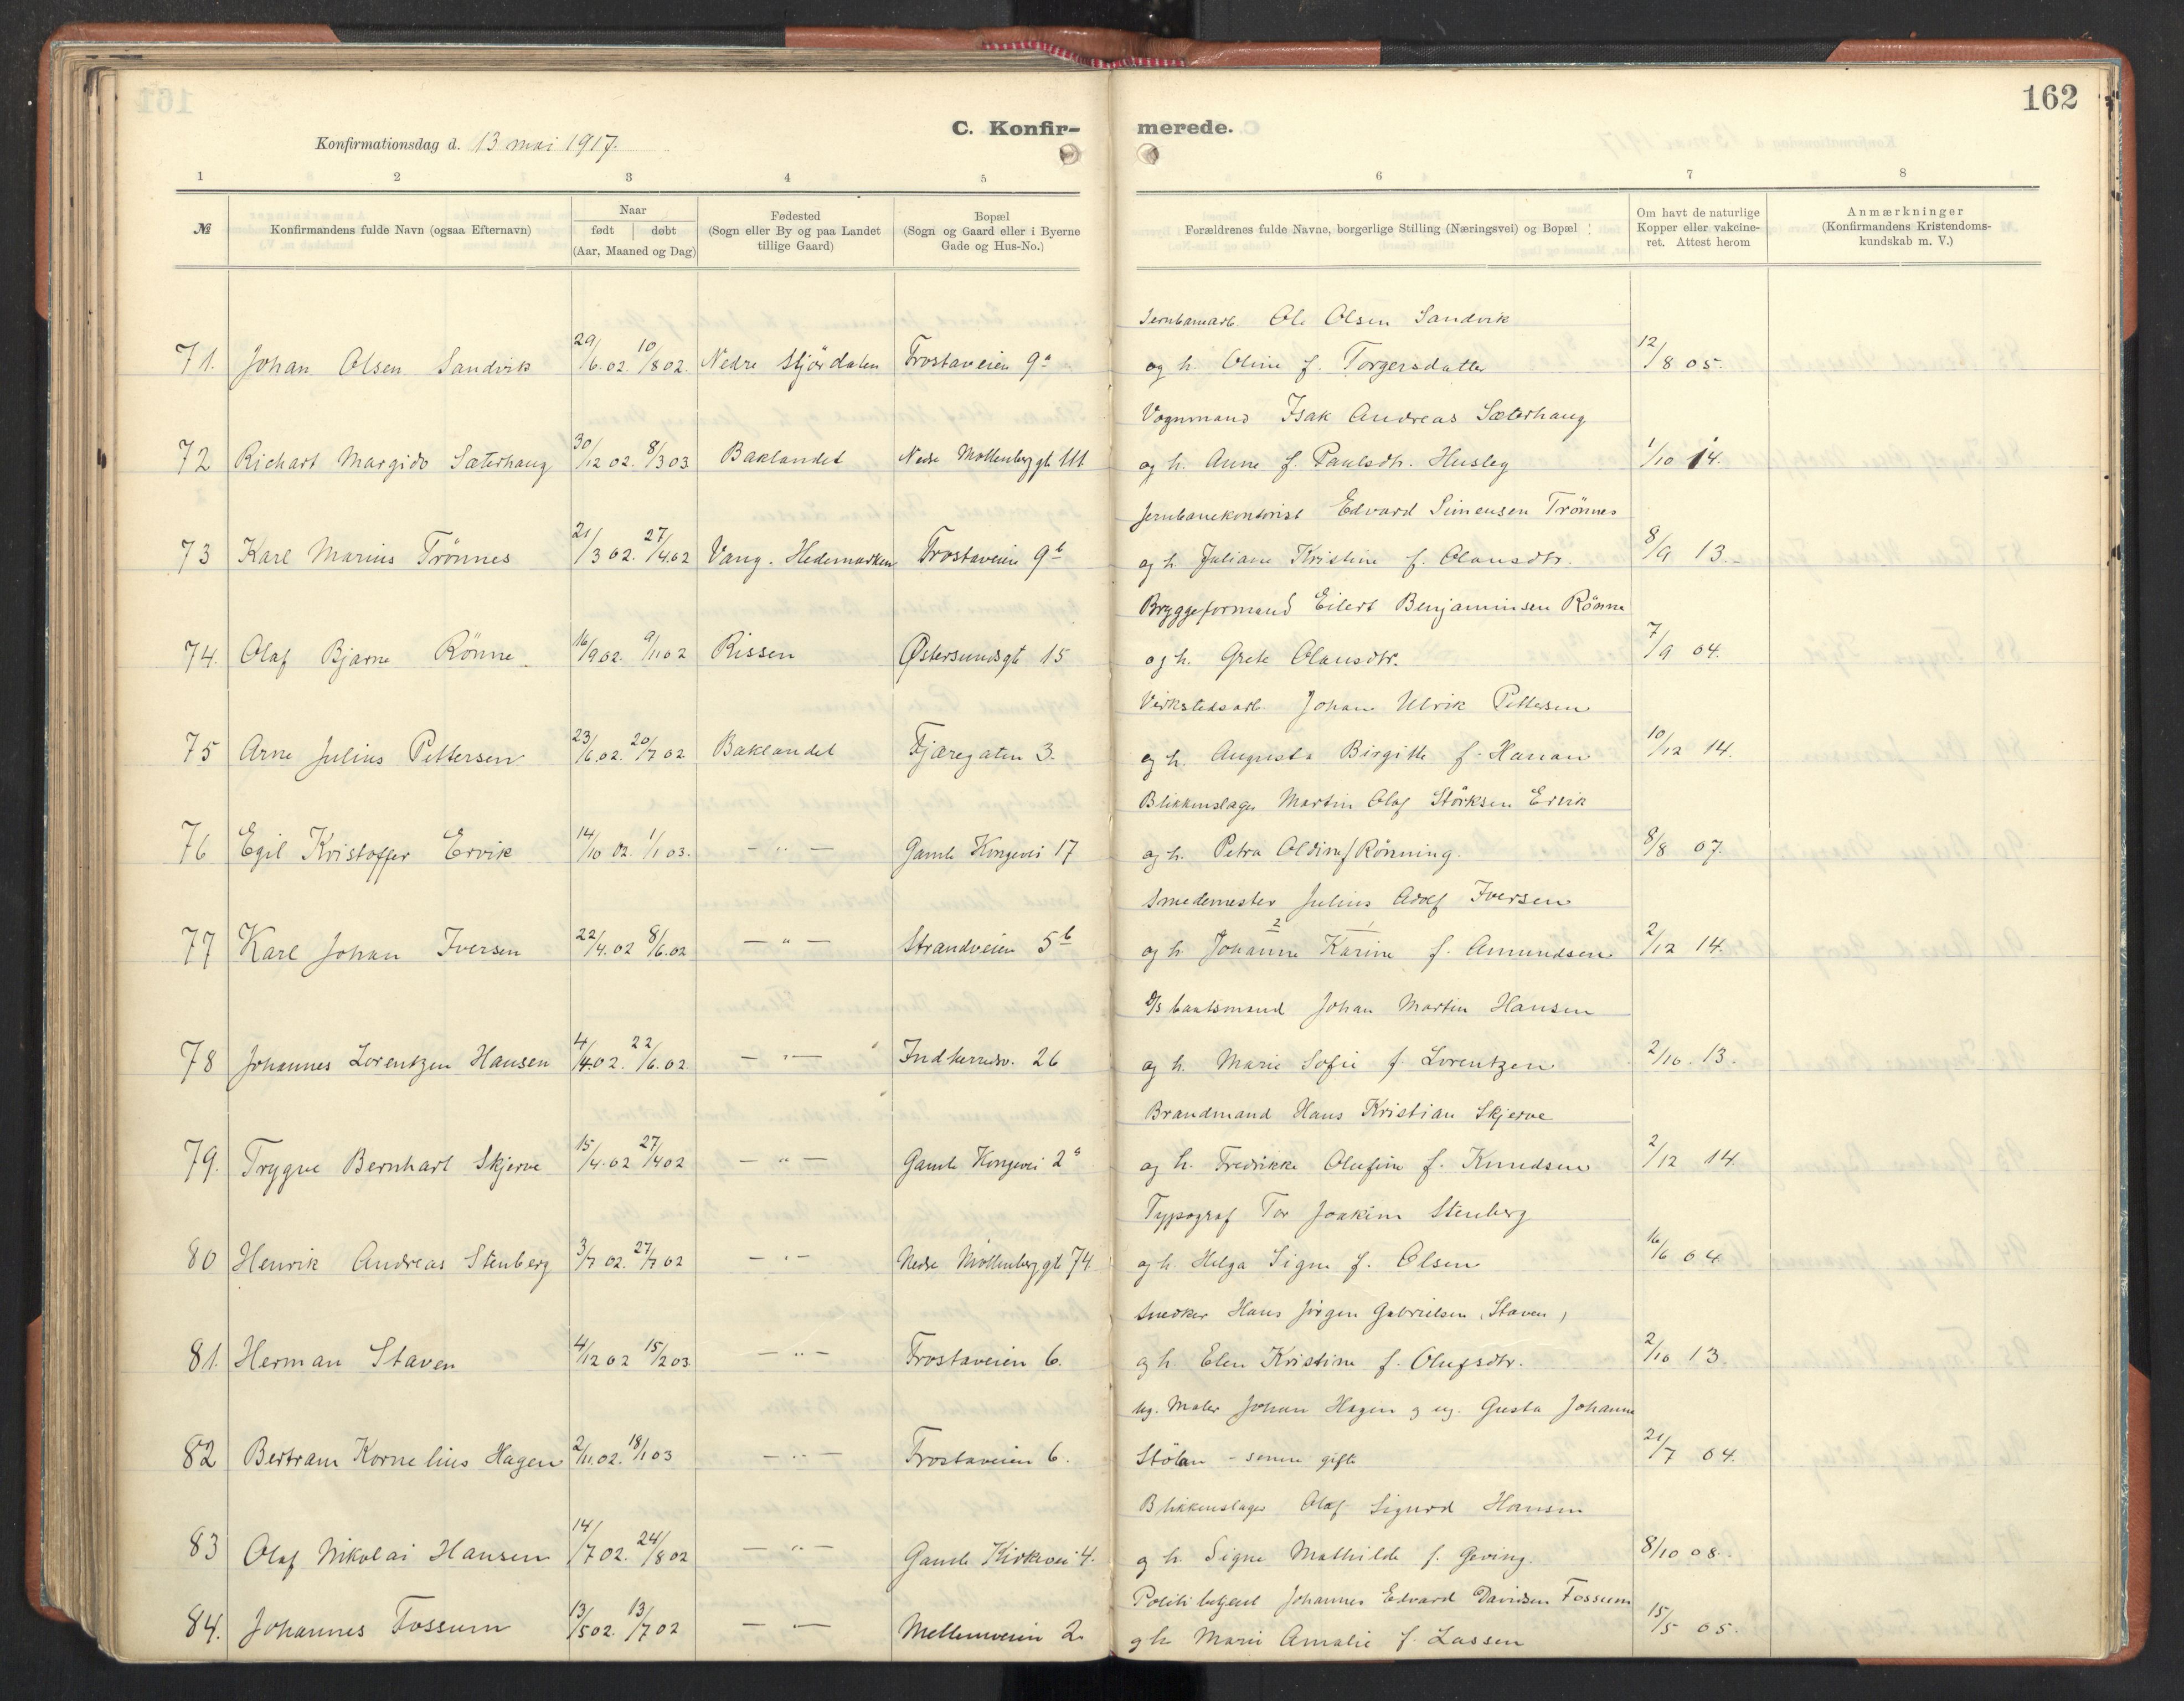 162
C. Konfir- merede.
Konfirmationsdag d. 13 mai 1917.
1 2 3 4 5 6 7 8
№
Konfirmandens fulde Navn (ogsaa Efternavn)
Naar
født døbt
(Aar, Maaned og Dag)
Fødested
(Sogn eller By og paa Landet
tillige Gaard)
Bopæl
(Sogn og Gaard eller i Byerne
Gade og Hus-No.)
Forældrenes fulde Navne, borgerlige Stilling (Næringsvei) og Bopæl
Om havt de naturlige
Kopper eller vakcine-
ret. Attest herom
Anmærkninger
(Konfirmandens Kristendoms-
kundskab m. V.)
Jernbanearb. Ole Olsen Sandvik
71. Johan Olsen Sandvik 29/6.02. 10/8 02. Nedre Stjördalen Frostaveien 9a og h. Oline f. Torgersdatter 12/8 05.
Vognmand Isak Andreas Sæterhaug
72 Richart Margido Sæterhaug 30/12 02. 8/3 03 Baklandet Nedre Mollenberggt. 111 og h. Anne f. Paulsdtr. Husley 1/10 14.
Jernbanekontorist Edvard Simensen Trönnes
73 Karl Marius Trönnes 21/3 02. 27/4.02 Vang. Hedemarken Frostaveien 9b og h. Juliane Kristine f. Olausdtr. 8/9 13.
Bryggeformand Eilert Benjaminsen Rönne
74. Olaf Bjarne Rönne 16/9 02. 9/11 02 Rissen Østersundsgt 15 og h. Grete Olausdtr. 7/9 04.
Verkstedsarb. Johan Ulrik Pettersen
75 Arne Julius Pettersen 23/6.02. 20/7 02 Baklandet Fjæregaten 3. og h. Augusta Birgitte f. Hanan 10/12 14.
Blikkenslager Martin Olaf Störksen Ervik
76 Egil Kristoffer Ervik 14/10 02. 1/1 03. — " — Gamle Kongevei 17 og h. Petra Oldine f Rönning. 8/8 07.
Smedemester Julius Adolf Iversen
2 1
77 Karl Johan Iversen 22/4.02 8/6.02 — " — Strandveien 5b og h. Johanne Karine f. Amundsen 2/12 14.
D/s baatsmand Johan Martin Hansen
78 Johannes Lorentzen Hansen 4/4.02. 22/6.02. — " — Indherredsv. 26 og h. Marie Sofie f. Lorentzen 2/10. 13.
Brandmand Hans Kristian Skjerve
79. Trygve Bernhart Skjerve 15/4.02 27/4 02 — " — Gamle Kongevei 2a og h. Fredrikke Olufine f. Knudsen 2/12 14.
Typograf Tor Joakim Stenberg
80 Henrik Andreas Stenberg 3/7 02. 27/7 02 — " — Nedre Möllenberggt 74 og h. Helga Signe f. Olsen 16/6 04
Snedker Hans Jörgen Gabrielsen (Staven)
81. Herman Staven 4/12 02 15/2 03 — " — Frostaveien 6. og h. Elen Kristine f. Olufsdtr. 2/10 13.
Ug. Maler Johan Hagen og ug. Gusta Johanne
82 Bertram Kornelius Hagen 2/11.02. 18/1 03 — " — Frostaveien 6. Stölan - senere gifte 21/7 04.
Blikkenslager Olaf Sigurd Hansen
83 Olaf Nikolai Hansen 14/7 02. 24/8 02 — " — Gamle Kirkevei 4. og h. Signe Mathilde f. Geving. 8/10 08.
Politibetjent Johannes Edvard Davidsen Fossum
84. Johannes Fossum 13/5 02. 13/7 02 — " — Mellemveien 2. og h. Marie Amalie f. Lassen 15/5 05.